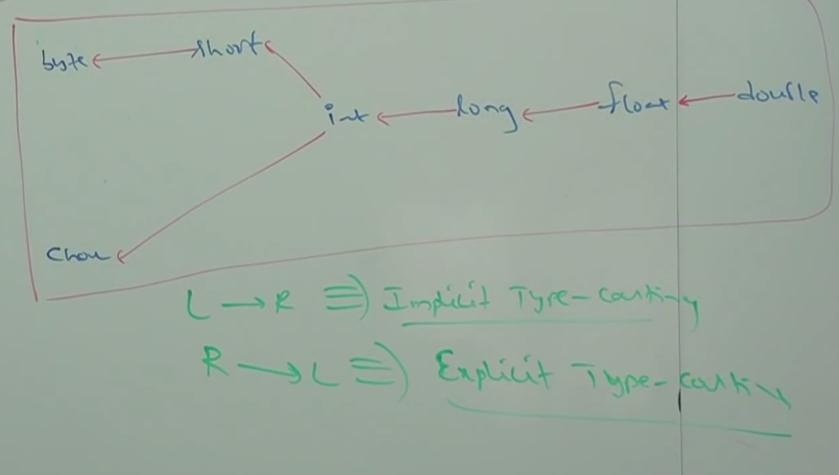 byte short
int long float double
char
L → R ≡) Implicit Type-casting
R → L ≡) Explicit Type-casting